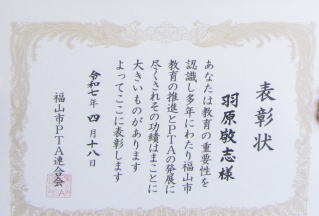 表彰状
羽原敬志様
あなたは教育の重要性を
認識し多年にわたり福山市
教育の推進とPTAの発展に
尽くされその功績はまことに
大きいものがあります
よってここに表彰します
令和七年 四月十八日
福山市PTA連合会